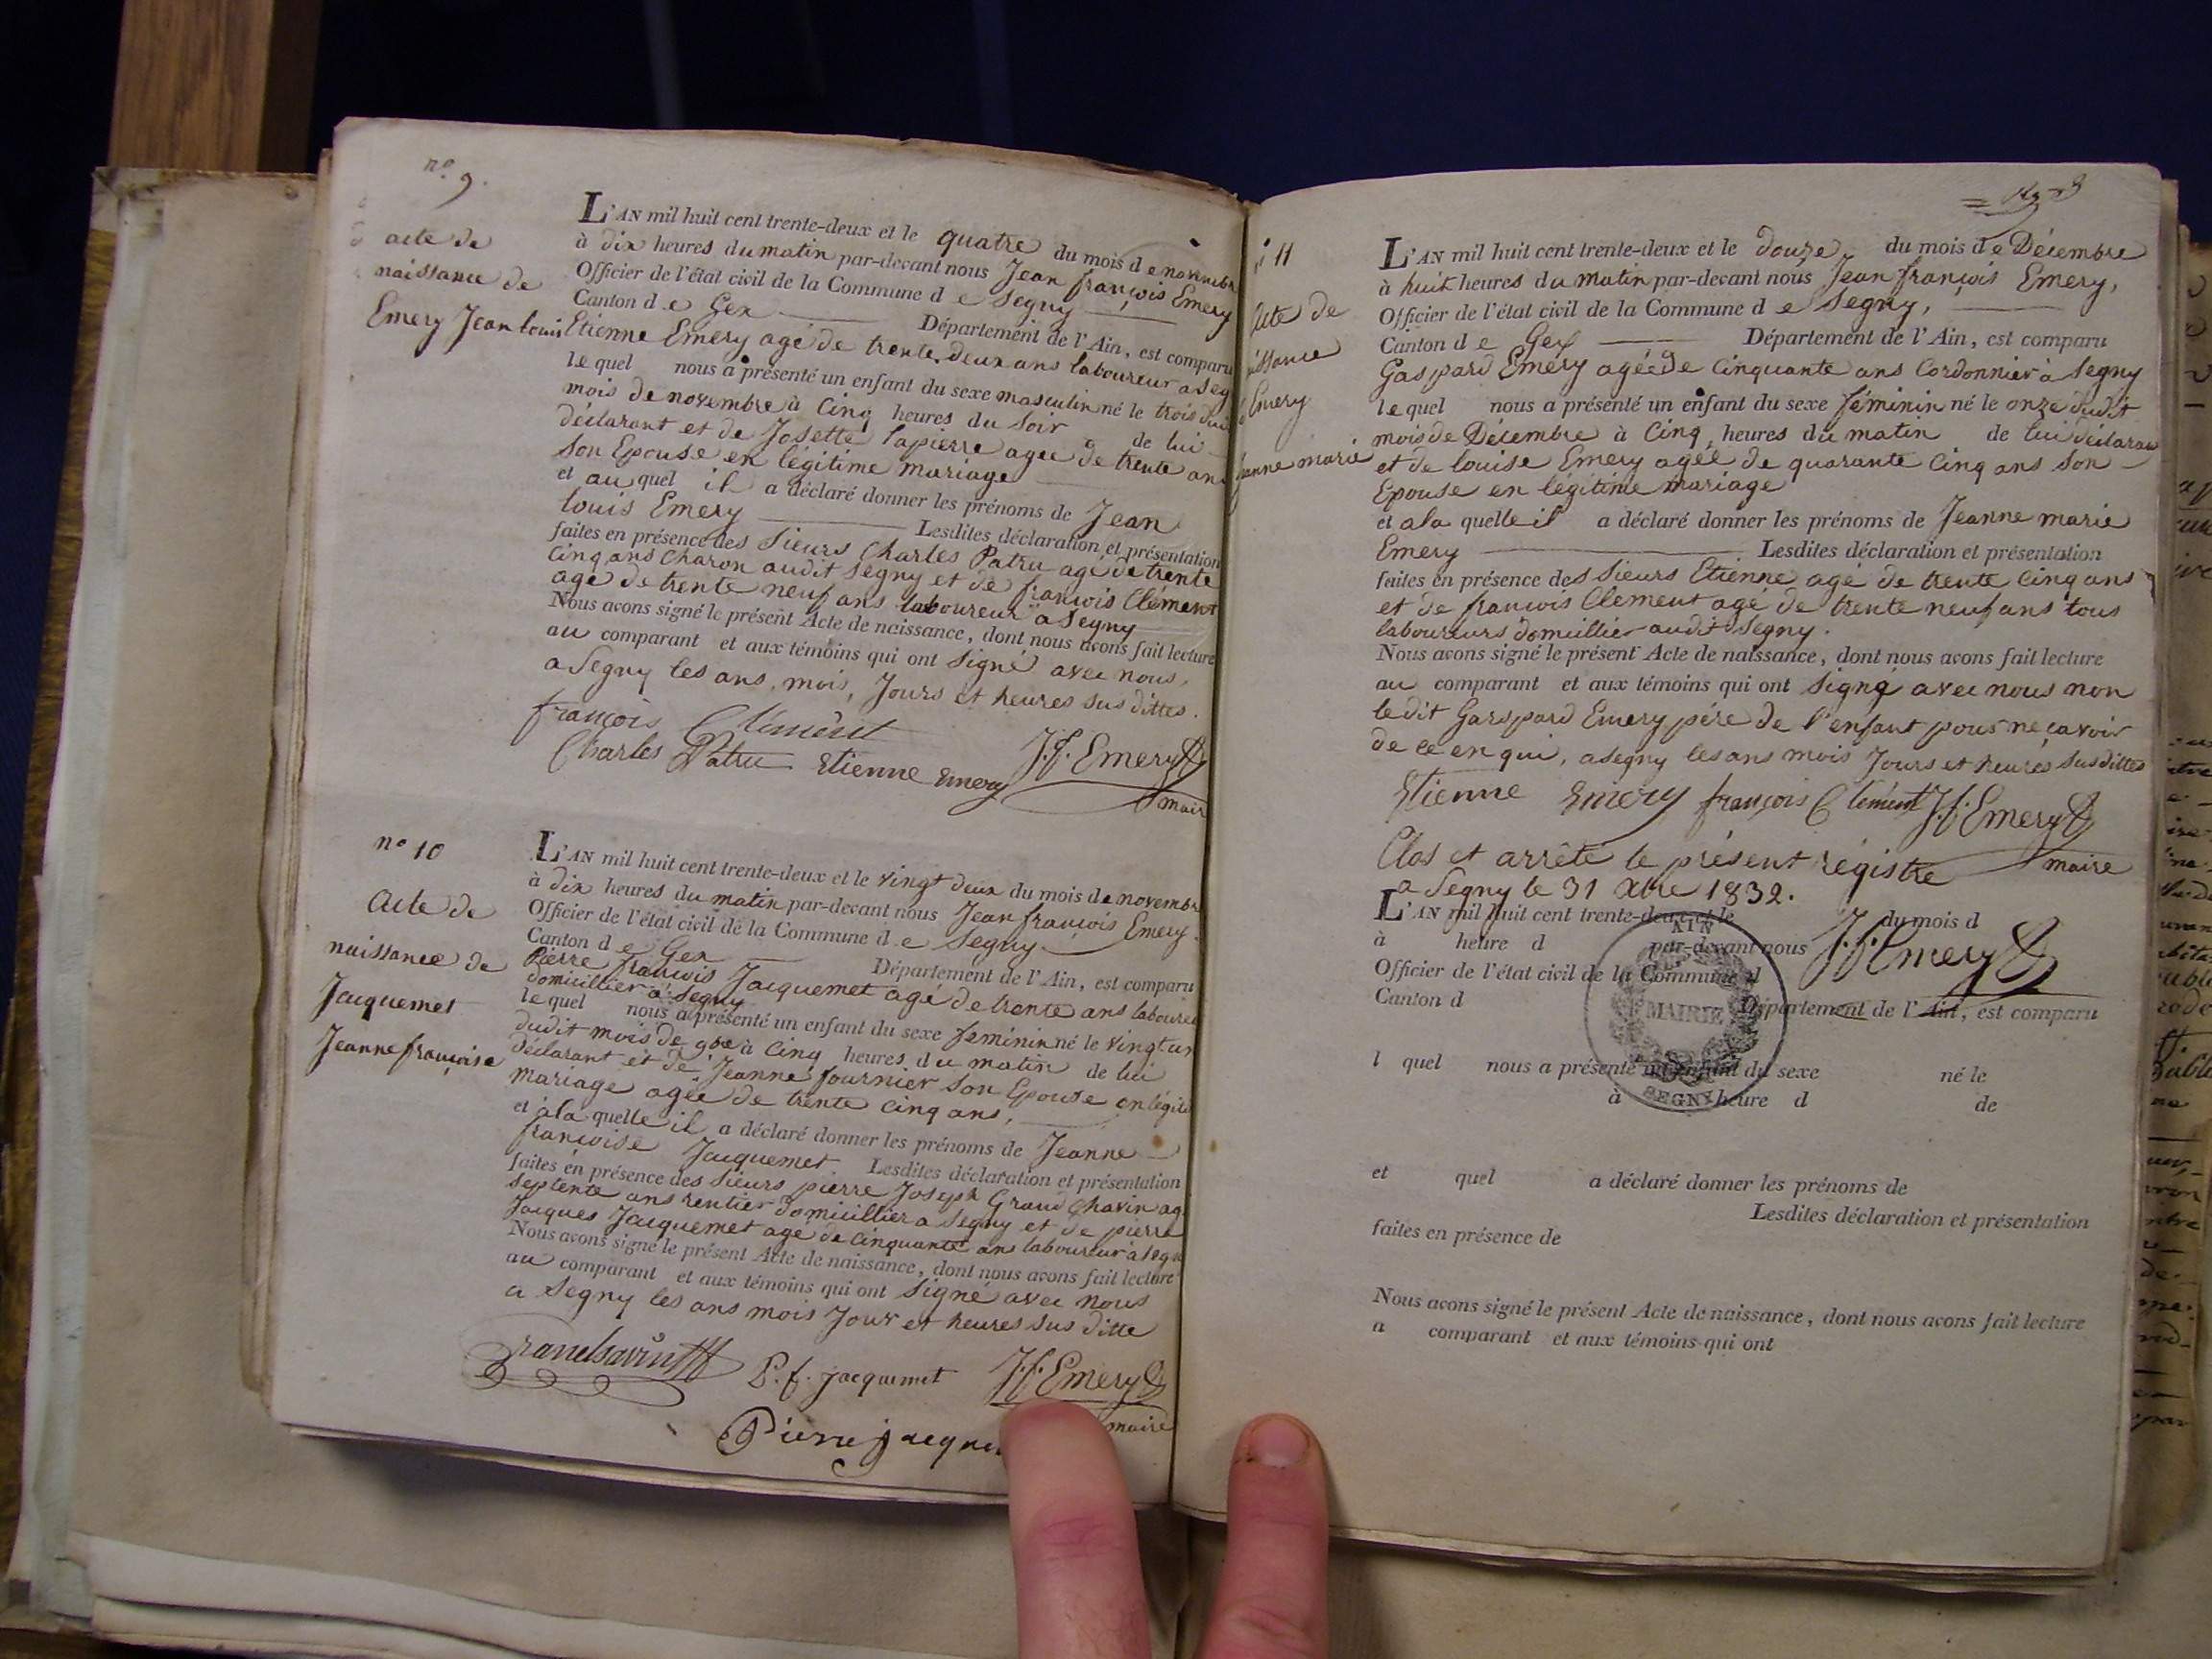 n.o 9.
acte de
naissance de
Emery Jean Louis
L'AN mil huit cent trente-deux et le quatre du mois de novembre
à dix heures du matin par-devant nous Jean françois Emery
Officier de l'état civil de la Commune de Segny
Canton de Gex Département de l'Ain, est comparu
Etienne Emery agé de trente deux ans laboureur a Seg
lequel nous a présenté un enfant du sexe masculin né le trois du
mois de novembre à Cinq heures du Soir de lui
déclarant et de Josette lapierre agée de trente an
son Epouse en légitime mariage
et au quel il a déclaré donner les prénoms de Jean
louis Emery Lesdites déclaration et présentation
faites en présence des Sieurs Charles Patru agé de trente
Cinq ans Charon audit Segny et de françois Clément
agé de trente neuf ans laboureur a Segny
Nous avons signé le présent Acte de naissance, dont nous avons fait lecture
au comparant et aux témoins qui ont Signé avec nous,
a Segny les ans, mois, Jours et heures sus dittes.
françois Clément
Charles Patru Etienne Emery J.f. Emery
mair
n.o 10
Acte de
naissance de
Jacquemet
Jeanne françoise
L'AN mil huit cent trente-deux et le vingt deux du mois de novembr
à dix heures du matin par-devant nous Jean françois Emery
Officier de l'état civil de la Commune de Segny
Canton de Gex Département de l'Ain, est comparu
Pierre françois Jacquemet agé de trente ans laboureu
domicillier a Segny
lequel nous a présenté un enfant du sexe feminin né le vingt un
dudit mois de 9bre à Cinq heures du matin de lui
déclarant et de Jeanne fournier Son Epouse en légiti
mariage agée de trente Cinq ans,
et àla quelle il a déclaré donner les prénoms de Jeanne
françoise Jacquemet Lesdites déclaration et présentation
faites en présence des Sieurs pierre Joseph Grand Chavin ag
septente ans rentier domicillier a Segny et de pierre
Jacques Jacquemet agé de Cinquante ans laboureur à Segn
Nous avons signé le présent Acte de naissance, dont nous avons fait lecture
au comparant et aux témoins qui ont Signé avec nous
a Segny les ans mois Jour et heures sus ditte
P. f. jacquemet J.f. Emery
maire
Pierre jacqu
11
Acte de
issance
Emery
Jeanne marie
L'AN mil huit cent trente-deux et le douze du mois de Décembre
à huit heures du matin par-devant nous Jean françois Emery,
Officier de l'état civil de la Commune de Segny,
Canton de Gex Département de l'Ain, est comparu
Gaspard Emery agée de Cinquante ans Cordonnier à Segny
lequel nous a présenté un enfant du sexe féminin né le onze dudit
mois de Décembre à Cinq heures du matin de lui déclaran
et de louise Emery agée de quarante Cinq ans Son
Epouse en légitime mariage
et ala quelle il a déclaré donner les prénoms de Jeanne marie
Emery Lesdites déclaration et présentation
faites en présence des Sieurs Etienne agé de trente Cinq ans
et de françois Clement agé de trente neuf ans tous
laboureurs domicillier audit Segny.
Nous avons signé le présent Acte de naissance, dont nous avons fait lecture
au comparant et aux témoins qui ont Signé avec nous non
ledit Garspard Emery pére de l'enfant pour ne çavoir
de ce en qui, a Segny les ans mois Jours et heures Susdittes
Etienne Emery françois Clément J.f. Emery
maire
Clos et arrêté le présent régistre
a Segny le 31 Xbre 1832.
J.f. Emery
L'AN mil huit cent trente-deux et le du mois d
à heure d par-devant nous
Officier de l'état civil de la Commune d
Canton d Département de l'Ain, est comparu
AIN
MAIRIE
SEGNY
l quel nous a présenté un enfant du sexe né le
à heure d de
et quel a déclaré donner les prénoms de
Lesdites déclaration et présentation
faites en présence de
Nous avons signé le présent Acte de naissance, dont nous avons fait lecture
a comparant et aux témoins qui ont